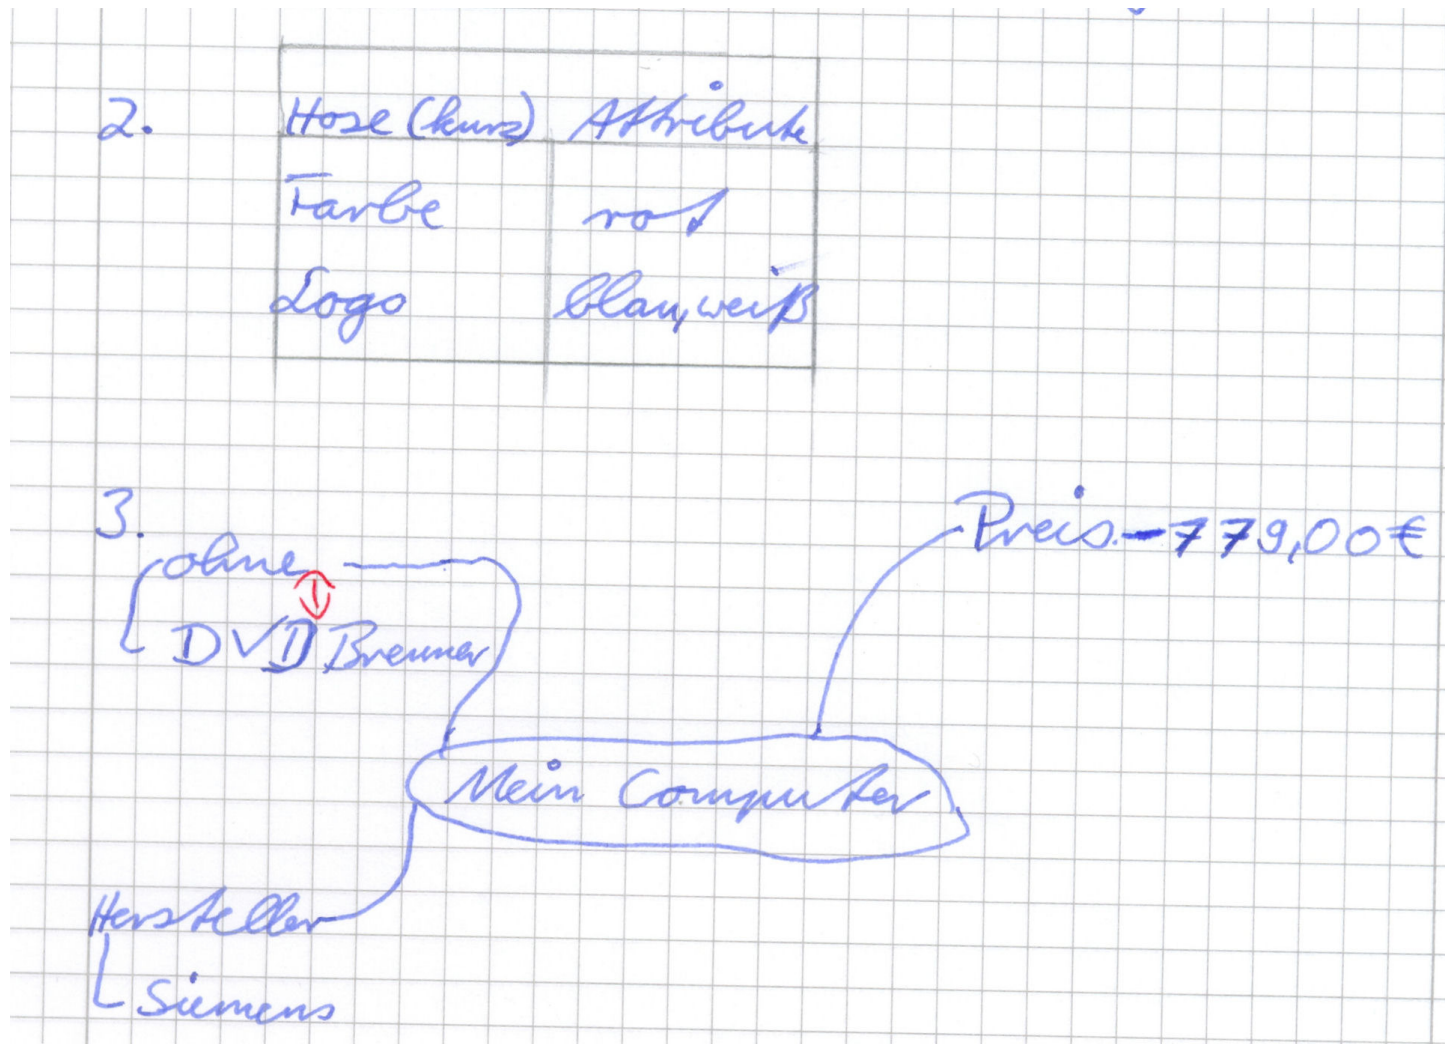 2.
Hose (kurz) Attribute
Farbe rot
Logo blau, weiß
3.
ohne
DVD Brenner
Preis - 779,00 €
Mein Computer
Hersteller
Siemens